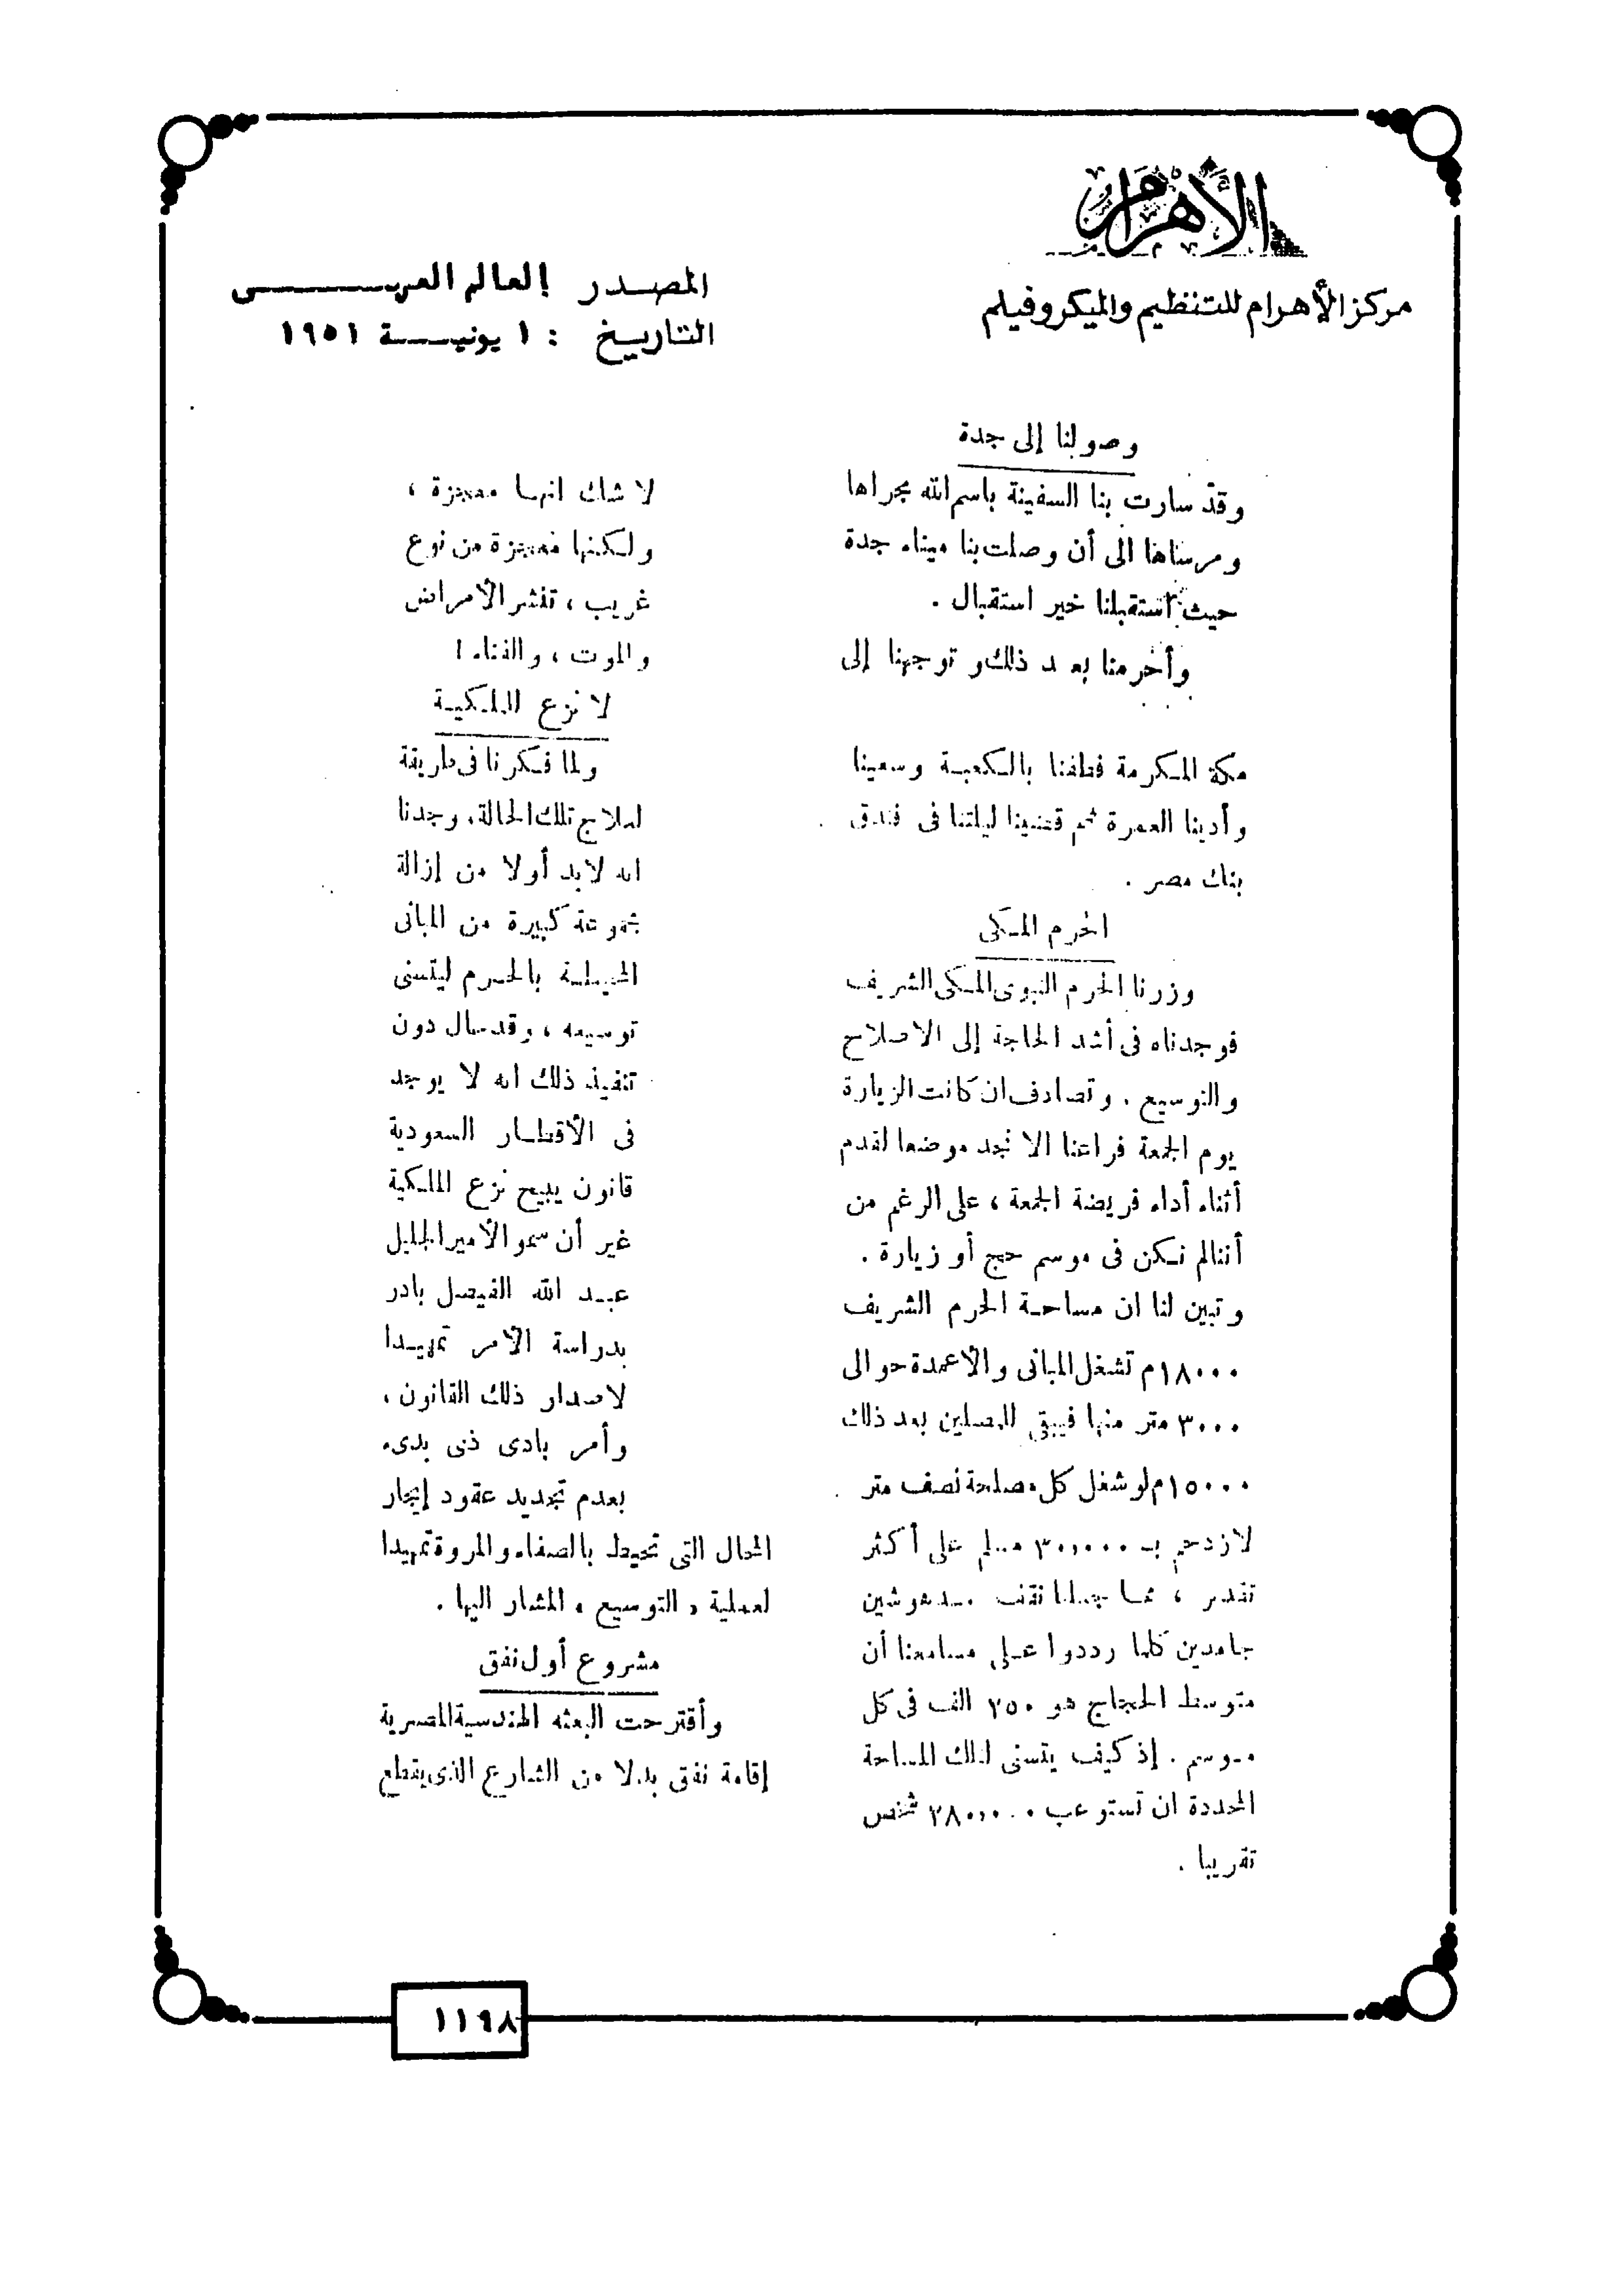 الأهرام
مركز الأهرام للتنظيم والميكروفيلم
المصدر العالم العربى
التاريخ : ١ يونية ١٩٥١
وصولنا إلى جدة
وقد سارت بنا السفينة باسم الله مجراها
ومرساها الى أن وصلت بنا ميناء جدة
حيث استقبلنا خير استقبال .
وأحرمنا بعد ذلك وتوجهنا إلى
مكة المكرمة فطفنا بالكعبة وسعينا
وأدينا العمرة ثم قضينا ليلتنا فى فندق
بنك مصر .
الحرم المكى
وزرنا الحرم النبوى المكى الشريف
فوجدناه فى أشد الحاجة إلى الاصلاح
والتوسيع . وتصادف ان كانت الزيارة
يوم الجمعة فراعنا الا نجد موضعا لقدم
أثناء أداء فريضة الجمعة ، على الرغم من
أننالم نكن فى موسم حج أو زيارة .
وتبين لنا ان مساحة الحرم الشريف
١٨٠٠٠م تشغل المبانى والاعمدة حوالى
٣٠٠٠ متر منها فيبقى للمصلين بعد ذلك
١٥٠٠٠م لو شغل كل مصل حة نصف متر
لازدحم بـ ٣٠،٠٠٠ مسلم على أكثر
تقدير ، مما جعلنا نقف مدهوشين
جامدين كلما رددوا على مسامعنا أن
متوسط الحجاج هو ٢٥٠ الف فى كل
موسم . إذ كيف يتسنى لتلك المساحة
المحددة ان تستوعب ٢٨٠،٠٠٠ شخص
تقريبا .
لا شك انها معجزة ،
ولكنها معجزة من نوع
غريب ، تنشر الأمراض
والموت ، والفناء !
لا نزع للملكية
ولما فكرنا فى طريقة
لعلاج تلك الحالة ، وجدنا
انه لابد أولا من إزالة
مجموعة كبيرة من المبانى
المحيطة بالحرم ليتسنى
توسيعه ، وقد حال دون
تنفيذ ذلك انه لا يوجد
فى الأقطار السعودية
قانون يبيح نزع الملكية
غير أن سمو الأمير الجليل
عبد الله الفيصل بادر
بدراسة الأمر تمهيدا
لاصدار ذلك القانون ،
وأمر بادى ذى بدىء
بعدم تجديد عقود إيجار
المحال التى تحيط بالصفاء والمروة تمهيدا
لعملية « التوسيع » المشار اليها .
مشروع أول نفق
وأقترحت البعثه الهندسية المصرية
إقامة نفق بدلا من الشارع الذى يقطع
١١٩٨